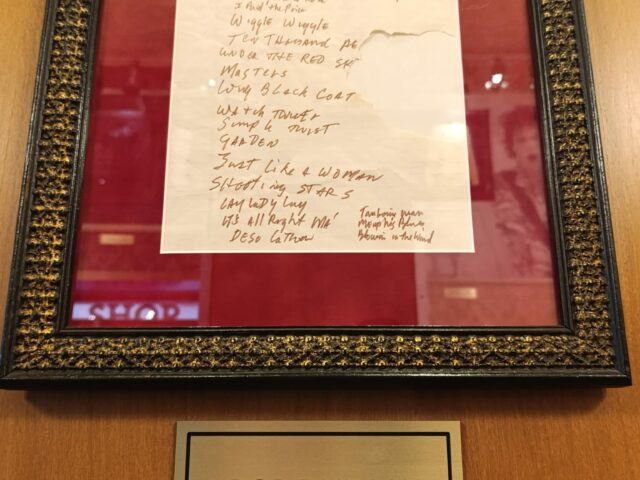 Wiggle Wiggle
Ten Thousand
UNDER THE RED SK
MASTERS
Long Black COAT
WATCH TOWER
Simple TWIST
GARDEN
Just Like A WOMAN
SHOOTING STARS
LAY LADY LAY
ITS All Right MA'
DESO
Tambourin man
Memphis Blues
Blowin in the Wind
SHOP